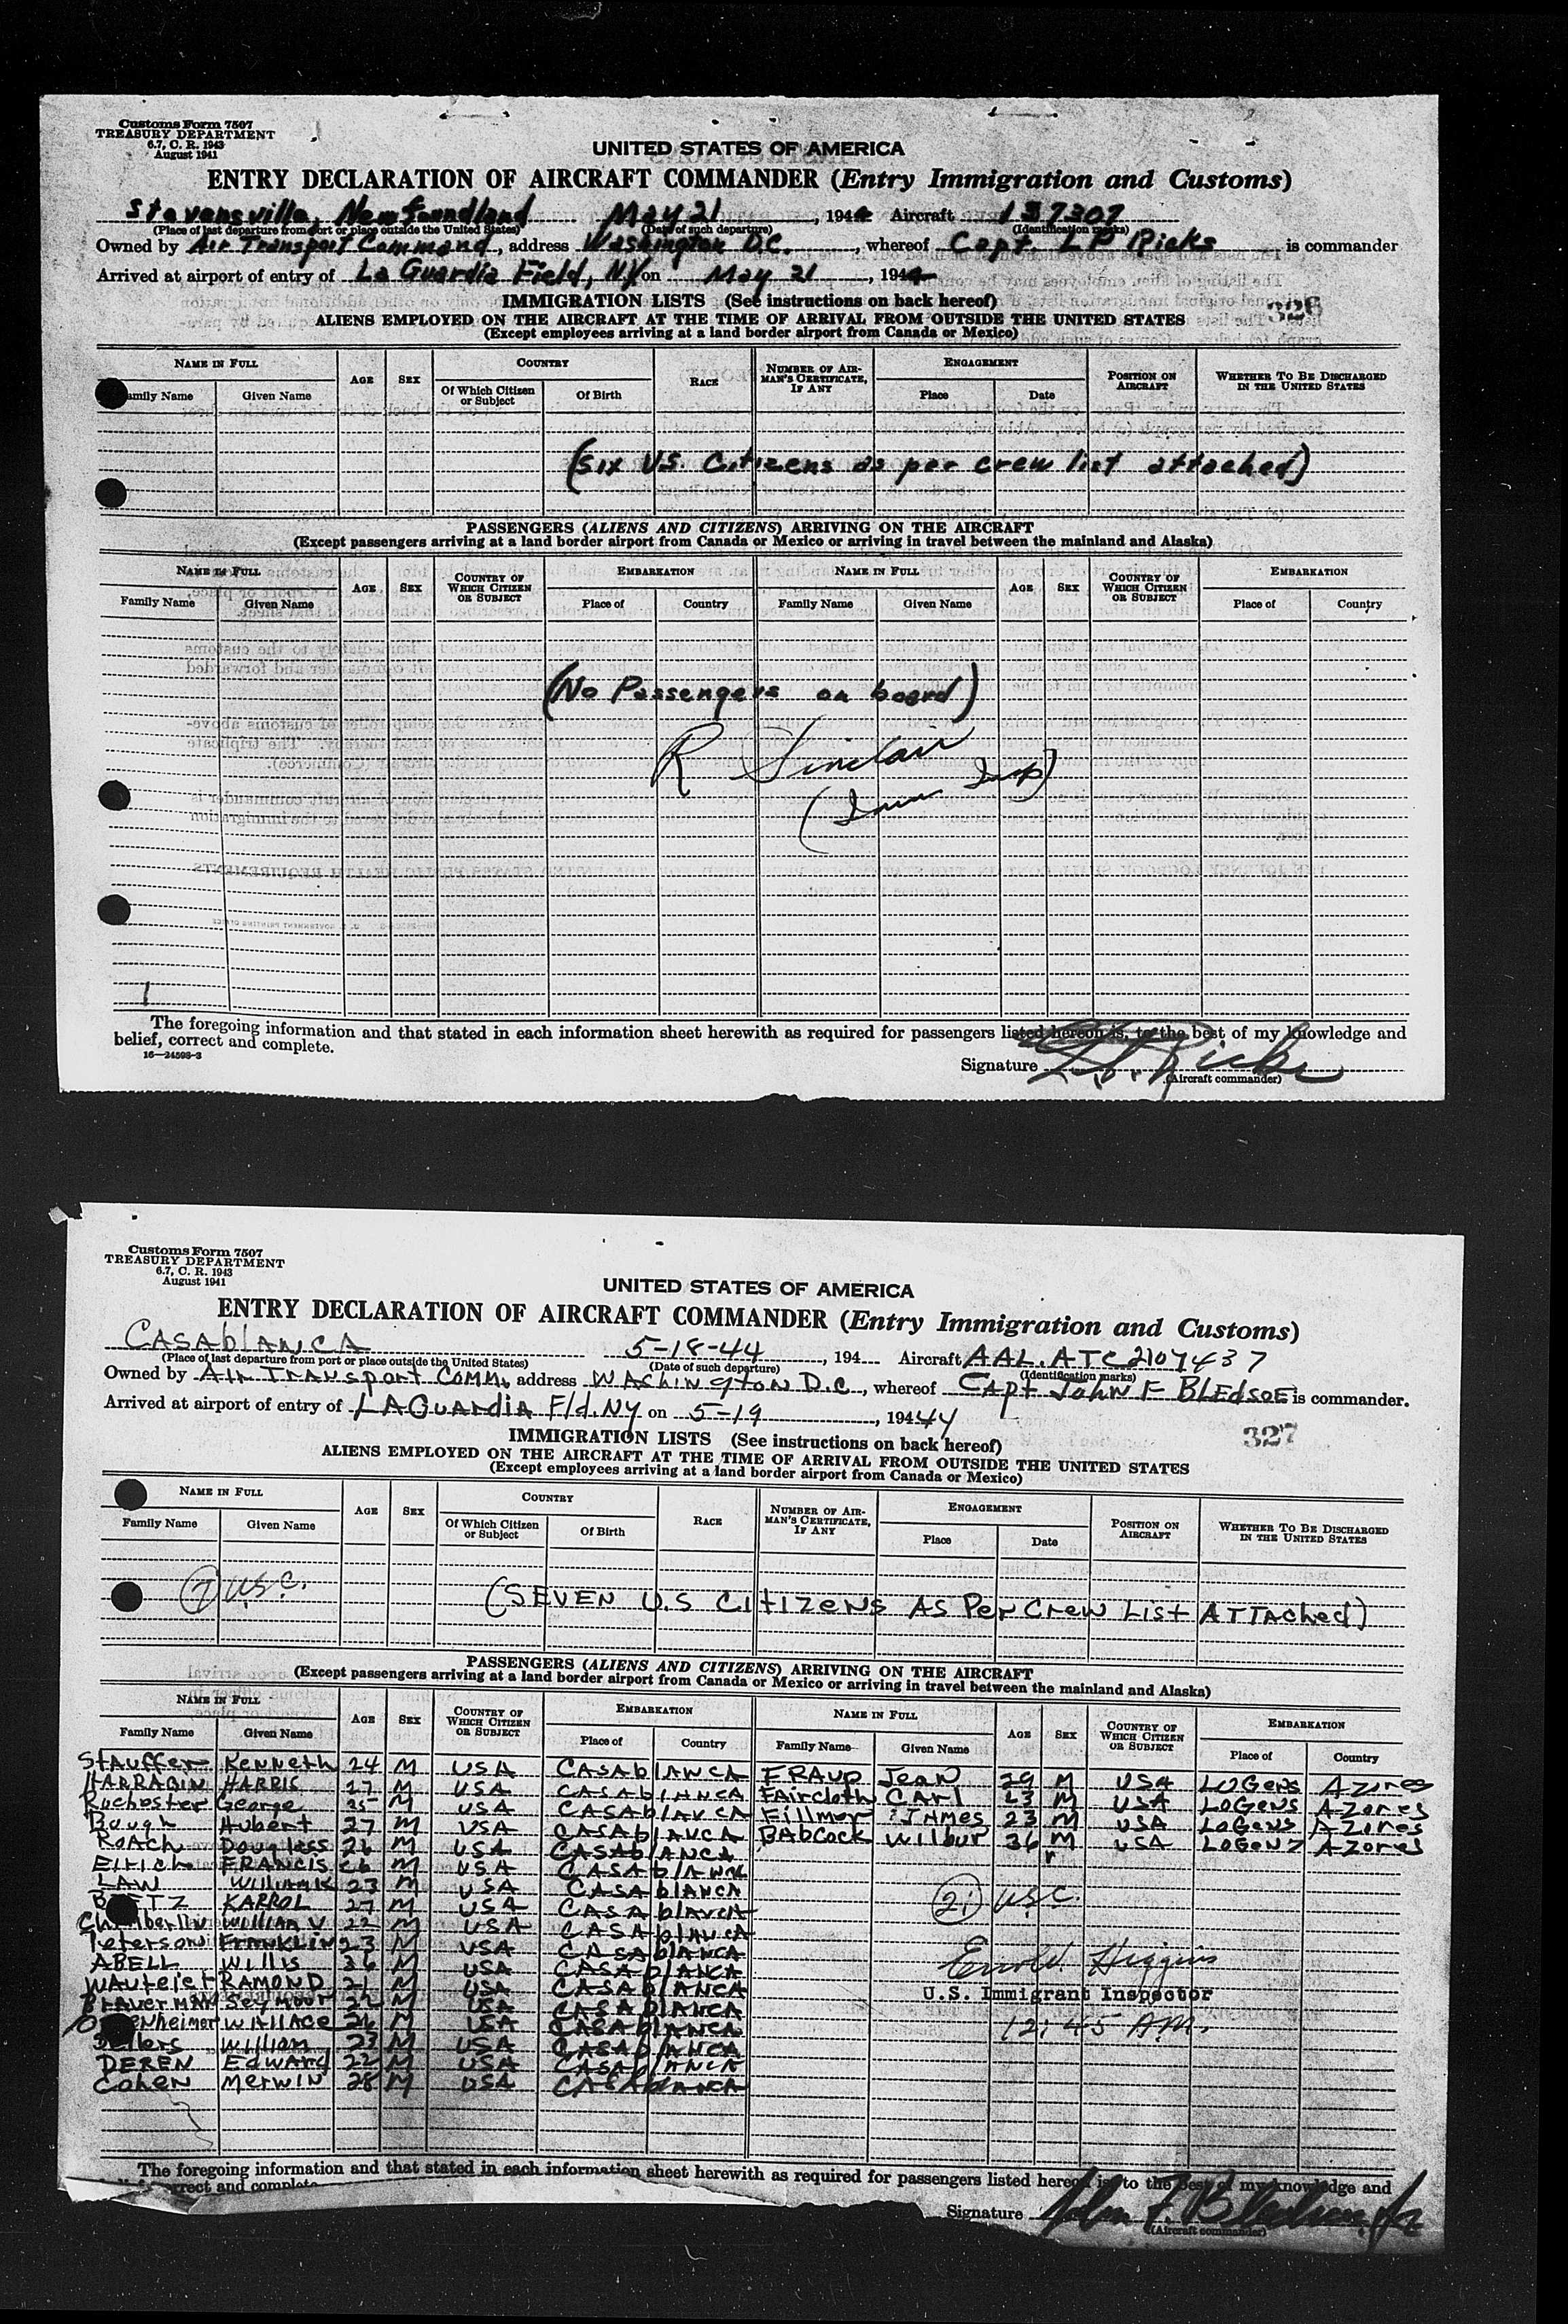 Customs Form 7507
TREASURY DEPARTMENT
6.7, C. R. 1943
August 1941
UNITED STATES OF AMERICA
ENTRY DECLARATION OF AIRCRAFT COMMANDER (Entry Immigration and Customs)
Stevensville, Newfoundland May 21, 1944 Aircraft 137307
(Place of last departure from port or place outside the United States) (Date of such departure) (Identification marks)
Owned by Air Transport Command, address Washington D.C., whereof Capt. L P Ricks is commander
Arrived at airport of entry of La Guardia Field, NY on May 21, 1944
326
IMMIGRATION LISTS (See instructions on back hereof)
ALIENS EMPLOYED ON THE AIRCRAFT AT THE TIME OF ARRIVAL FROM OUTSIDE THE UNITED STATES
(Except employees arriving at a land border airport from Canada or Mexico)
NAME IN FULL AGE SEX COUNTRY RACE NUMBER OF AIRMAN'S CERTIFICATE, IF ANY ENGAGEMENT POSITION ON AIRCRAFT WHETHER TO BE DISCHARGED IN THE UNITED STATES
amily Name Given Name Of Which Citizen or Subject Of Birth Place Date
(Six U.S. Citizens as per crew list attached)
PASSENGERS (ALIENS AND CITIZENS) ARRIVING ON THE AIRCRAFT
(Except passengers arriving at a land border airport from Canada or Mexico or arriving in travel between the mainland and Alaska)
NAME IN FULL AGE SEX COUNTRY OF WHICH CITIZEN OR SUBJECT EMBARKATION NAME IN FULL AGE SEX COUNTRY OF WHICH CITIZEN OR SUBJECT EMBARKATION
Family Name Given Name Place of Country Family Name Given Name Place of Country
(No Passengers on board)
R Sinclair
(Imm Insp)
1
The foregoing information and that stated in each information sheet herewith as required for passengers listed hereon is, to the best of my knowledge and
belief, correct and complete.
16—24598-3
Signature L. P. Ricks
(Aircraft commander)
Customs Form 7507
TREASURY DEPARTMENT
6.7, C. R. 1943
August 1941
UNITED STATES OF AMERICA
ENTRY DECLARATION OF AIRCRAFT COMMANDER (Entry Immigration and Customs)
CASAblANCA 5-18-44, 194 Aircraft AAL. ATC 2107437
(Place of last departure from port or place outside the United States) (Date of such departure) (Identification marks)
Owned by Air Transport Comm, address WAShington D.C, whereof CApt John F BLEdsoE is commander.
Arrived at airport of entry of LAGuardia Fld. NY on 5-19, 19444
327
IMMIGRATION LISTS (See instructions on back hereof)
ALIENS EMPLOYED ON THE AIRCRAFT AT THE TIME OF ARRIVAL FROM OUTSIDE THE UNITED STATES
(Except employees arriving at a land border airport from Canada or Mexico)
NAME IN FULL AGE SEX COUNTRY RACE NUMBER OF AIRMAN'S CERTIFICATE, IF ANY ENGAGEMENT POSITION ON AIRCRAFT WHETHER TO BE DISCHARGED IN THE UNITED STATES
Family Name Given Name Of Which Citizen or Subject Of Birth Place Date
7 USC.
(SEVEN U.S CitizeNS As Per Crew List ATTAched)
PASSENGERS (ALIENS AND CITIZENS) ARRIVING ON THE AIRCRAFT
(Except passengers arriving at a land border airport from Canada or Mexico or arriving in travel between the mainland and Alaska)
NAME IN FULL AGE SEX COUNTRY OF WHICH CITIZEN OR SUBJECT EMBARKATION NAME IN FULL AGE SEX COUNTRY OF WHICH CITIZEN OR SUBJECT EMBARKATION
Family Name Given Name Place of Country Family Name Given Name Place of Country
Stauffer Kenneth 24 M USA CASAblANCA FRAUP Jean 29 M USA LOGens Azores
HARRABIN HARRIS 27 M USA CASAblANCA FAircloth Carl 23 M USA LOGens Azores
Rochester George 35 M USA CASAblANCA Fillmor JAmes 23 M USA LoGens Azores
Bough Hubert 27 M USA CASAblANCA BAbcock Wilbur 36 M USA LOGENZ Azores
ROACh Douglass 26 M USA CASAblANCA
FRANCIS 26 M USA CASAblANCA
LAW William K 23 M USA CASAblANCA
KARROL 27 M USA CASAblANCA
Chamberlin William V 22 M USA CASAblANCA
Peterson FRANKLIN 23 M USA CASAblANCA
ABELL Willis 36 M USA CASAblANCA
WAutelet RAMOND 21 M USA CASAblANCA
BraverMAN Seymour 22 M USA CASAblANCA
enheimer WALLACE 26 M USA CASAblANCA
William 23 M USA CASAblANCA
DEREN Edward 22 M USA CASAblANCA
Cohen Merwin 28 M USA CASAblANCA
21 USC.
Errold Higgins
U.S. Immigrant Inspector
12:45 AM.
The foregoing information and that stated in each information sheet herewith as required for passengers listed hereon is, to the best of my knowledge and
correct and complete
Signature John F. Bledsoe Jr
(Aircraft commander)